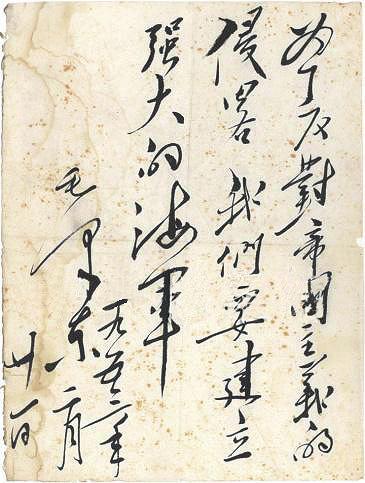 为了反對帝國主義的
侵略 我們要建立
强大的海軍
毛泽东
一九五三年
二月
廿一日